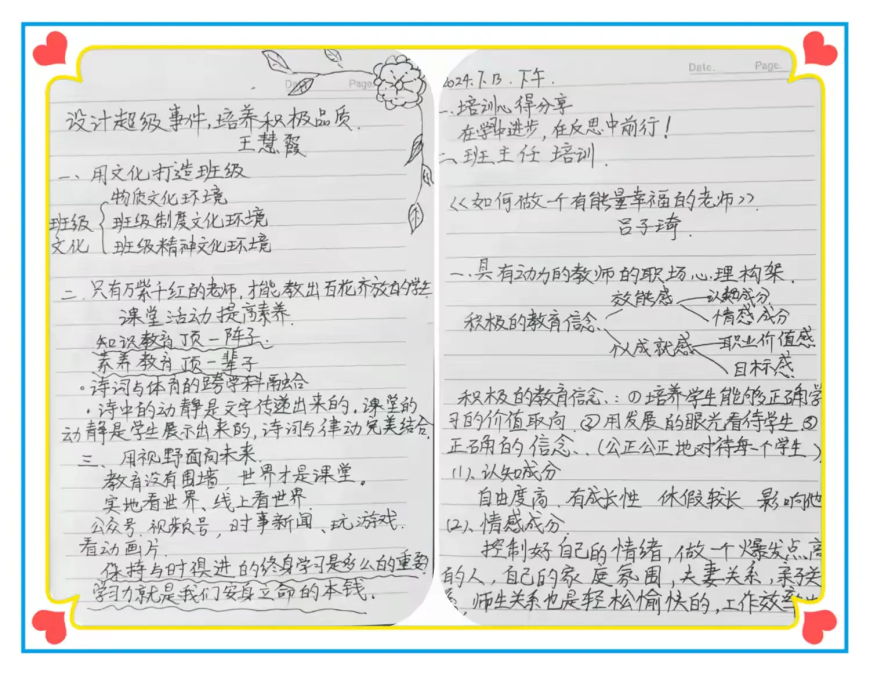 Date. Page.
设计超级事件,培养积极品质.
王慧霞
一、用文化打造班级
物质文化环境
班级 班级制度文化环境
文化 班级精神文化环境
二、只有万紫千红的老师,才能教出百花齐放的学生
课堂活动提高素养.
知识教育顶一阵子.
素养教育顶一辈子
·诗词与体育的跨学科融合
·诗中的动静是文字传递出来的,课堂的
动静是学生展示出来的,诗词与律动完美结合.
三、用视野面向未来.
教育没有围墙,世界才是课堂。
实地看世界、线上看世界.
公众号,视频号,时事新闻、玩游戏.
看动画片.
保持与时俱进的终身学习是多么的重要
学习力就是我们安身立命的本钱.
Date. Page.
2024.7.13.下午.
一.培训心得分享
在学中进步,在反思中前行!
二、班主任培训.
《如何做一个有能量幸福的老师》.
吕子琦.
一.具有动力的教师的职场心理构架.
积极的教育信念
效能感
认知成分
情感成分
成就感
职业价值感
目标感
积极的教育信念:①培养学生能够正确学
习的价值取向 ②用发展的眼光看待学生 ③
正确的信念、(公正公正地对待每一个学生)
(1)、认知成分
自由度高、有成长性 休假较长 影响他
(2)、情感成分
控制好自己的情绪,做一个爆发点高
的人,自己的家庭氛围,夫妻关系,亲子关
系,师生关系也是轻松愉快的,工作效率